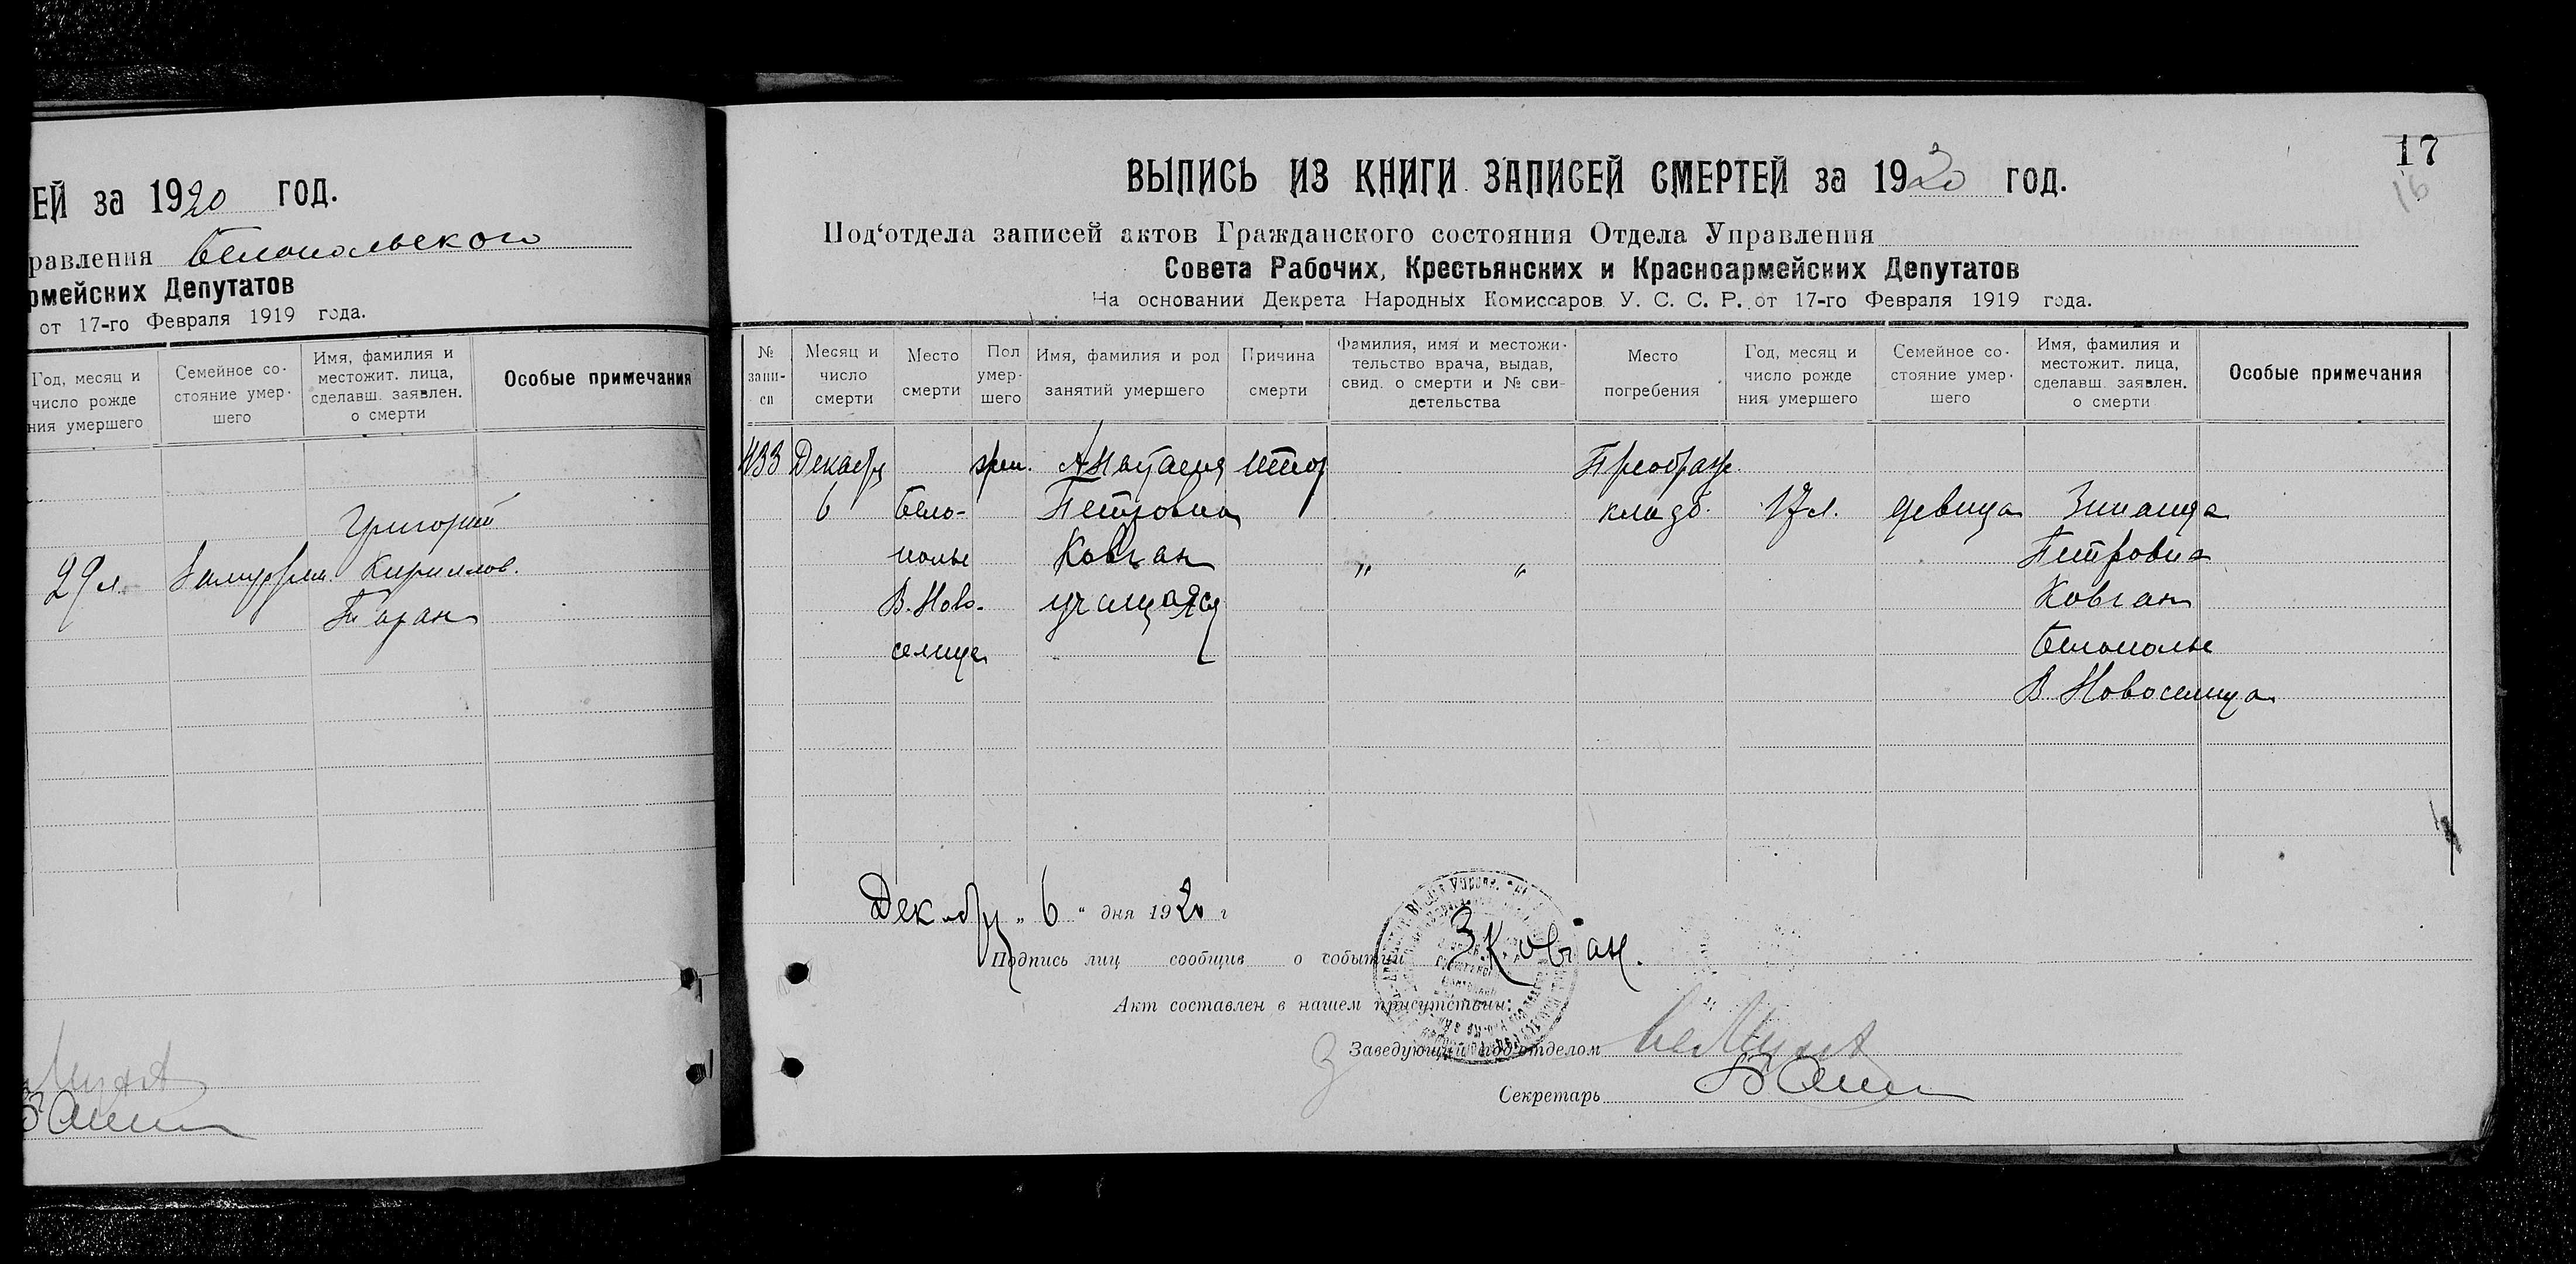 ЕЙ за 1920 год.
равления Белопольского
рмейских Депутатов
от 17-го Февраля 1919 года.
Год, месяц и
число рожде
ния умершего
Семейное со-
стояние умер-
шего
Имя, фамилия и
местожит. лица,
сделавш. заявлен.
о смерти
Особые примечания
Григорий
29 л. Замужем Кириллов.
Таран
17
16
ВЫПИСЬ ИЗ КНИГИ ЗАПИСЕЙ СМЕРТЕЙ за 1920 год.
Под'отдела записей актов Гражданского состояния Отдела Управления
Совета Рабочих, Крестьянских и Красноармейских Депутатов
На основании Декрета Народных Комиссаров У. С. С. Р. от 17-го Февраля 1919 года.
№
запи-
си
Месяц и
число
смерти
Место
смерти
Пол
умер-
шего
Имя, фамилия и род
занятий умершего
Причина
смерти
Фамилия, имя и местожи-
тельство врача, выдав,
свид. о смерти и № сви-
детельства
Место
погребения
Год, месяц и
число рожде
ния умершего
Семейное со-
стояние умер-
шего
Имя, фамилия и
местожит. лица,
сделавш. заявлен.
о смерти
Особые примечания
433 Декабря жен. Анастасия Преображ.
6 Бело- Петровна кладб. 17 л. девица Зинаида
полье Ковган " " Петровна
В. Ново- учащаяся Ковган
селица Белополье
В. Новоселица
Декабря „ 6 " дня 1920 г
Подпись лиц сообщив о событии З. Ковган.
Акт составлен в нашем присутствии:
Заведующий под'отделом
Секретарь